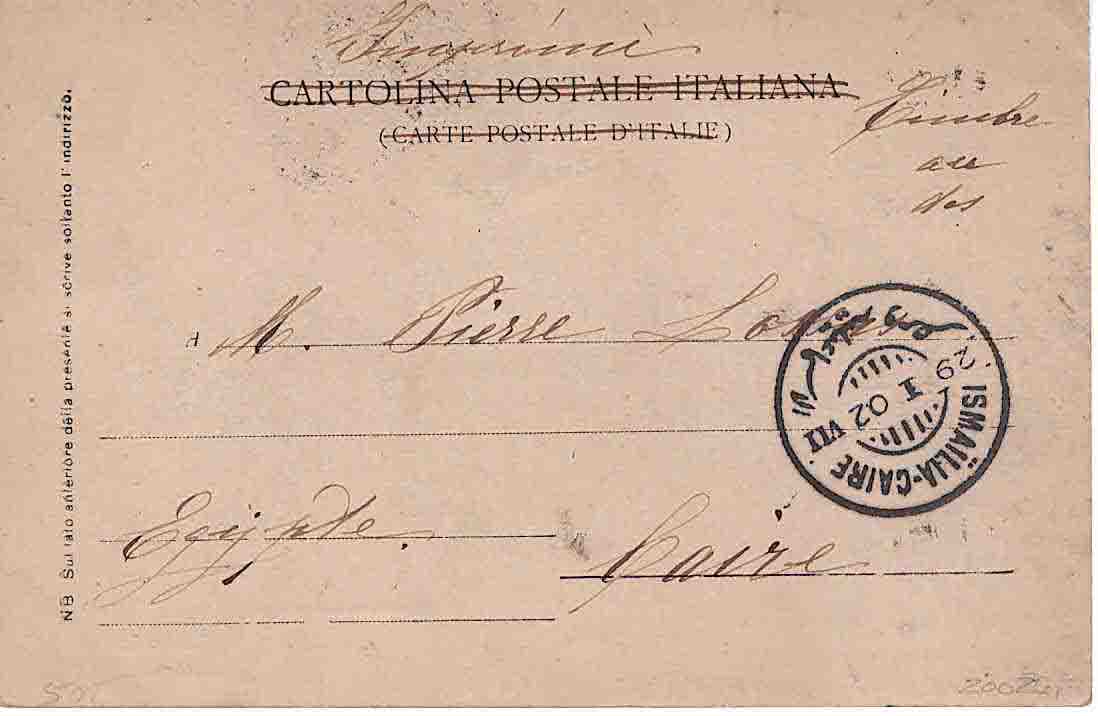 Imprimé
CARTOLINA POSTALE ITALIANA
(CARTE POSTALE D'ITALIE)
Timbre
au
dos
NB Sul lato anteriore della presente si scrive soltanto l'indirizzo.
A M. Pierre
ISMAÏLIA-CAIRE
29 I 02
VII
Egypte.
Caire